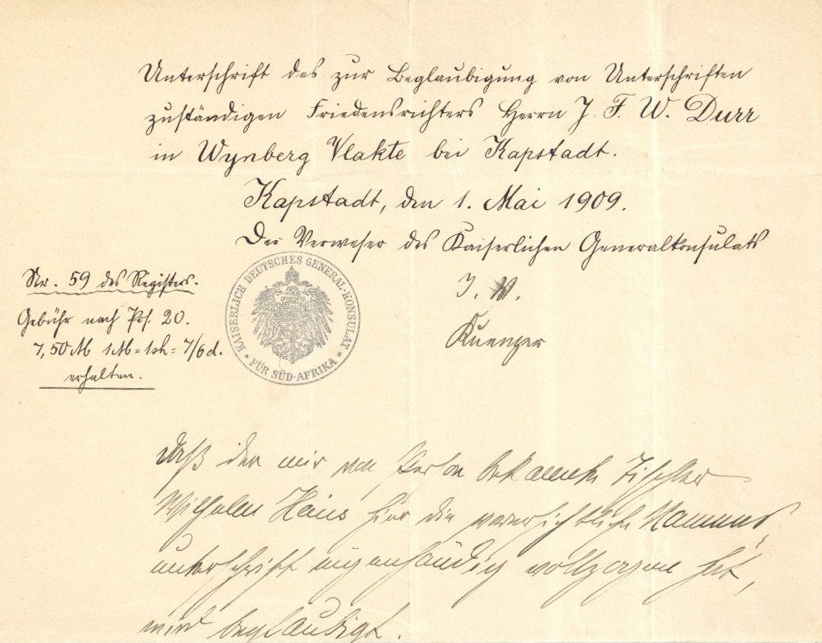 Unterschrift des zur Beglaubigung von Unterschriften
zuständigen Friedensrichters Herrn J. F. W. Durr
in Wynberg Vlakte bei Kapstadt.
Kapstadt, den 1. Mai 1909.
Der Verweser des Kaiserlichen Generalkonsulats
J. V.
Kuenzer
Nr. 59 des Registers.
Gebühr nach Pos. 20.
7,50 M 1M=1sh= 7/6d.
erhalten.
KAISERLICH DEUTSCHES GENERAL-KONSULAT
* FÜR SÜD-AFRIKA *
Daß der mir von Person bekannte Tischler
Wilhelm Hans hier die vorersichtliche Namens
unterschrift eigenhändig vollzogen hat,
wird beglaubigt.